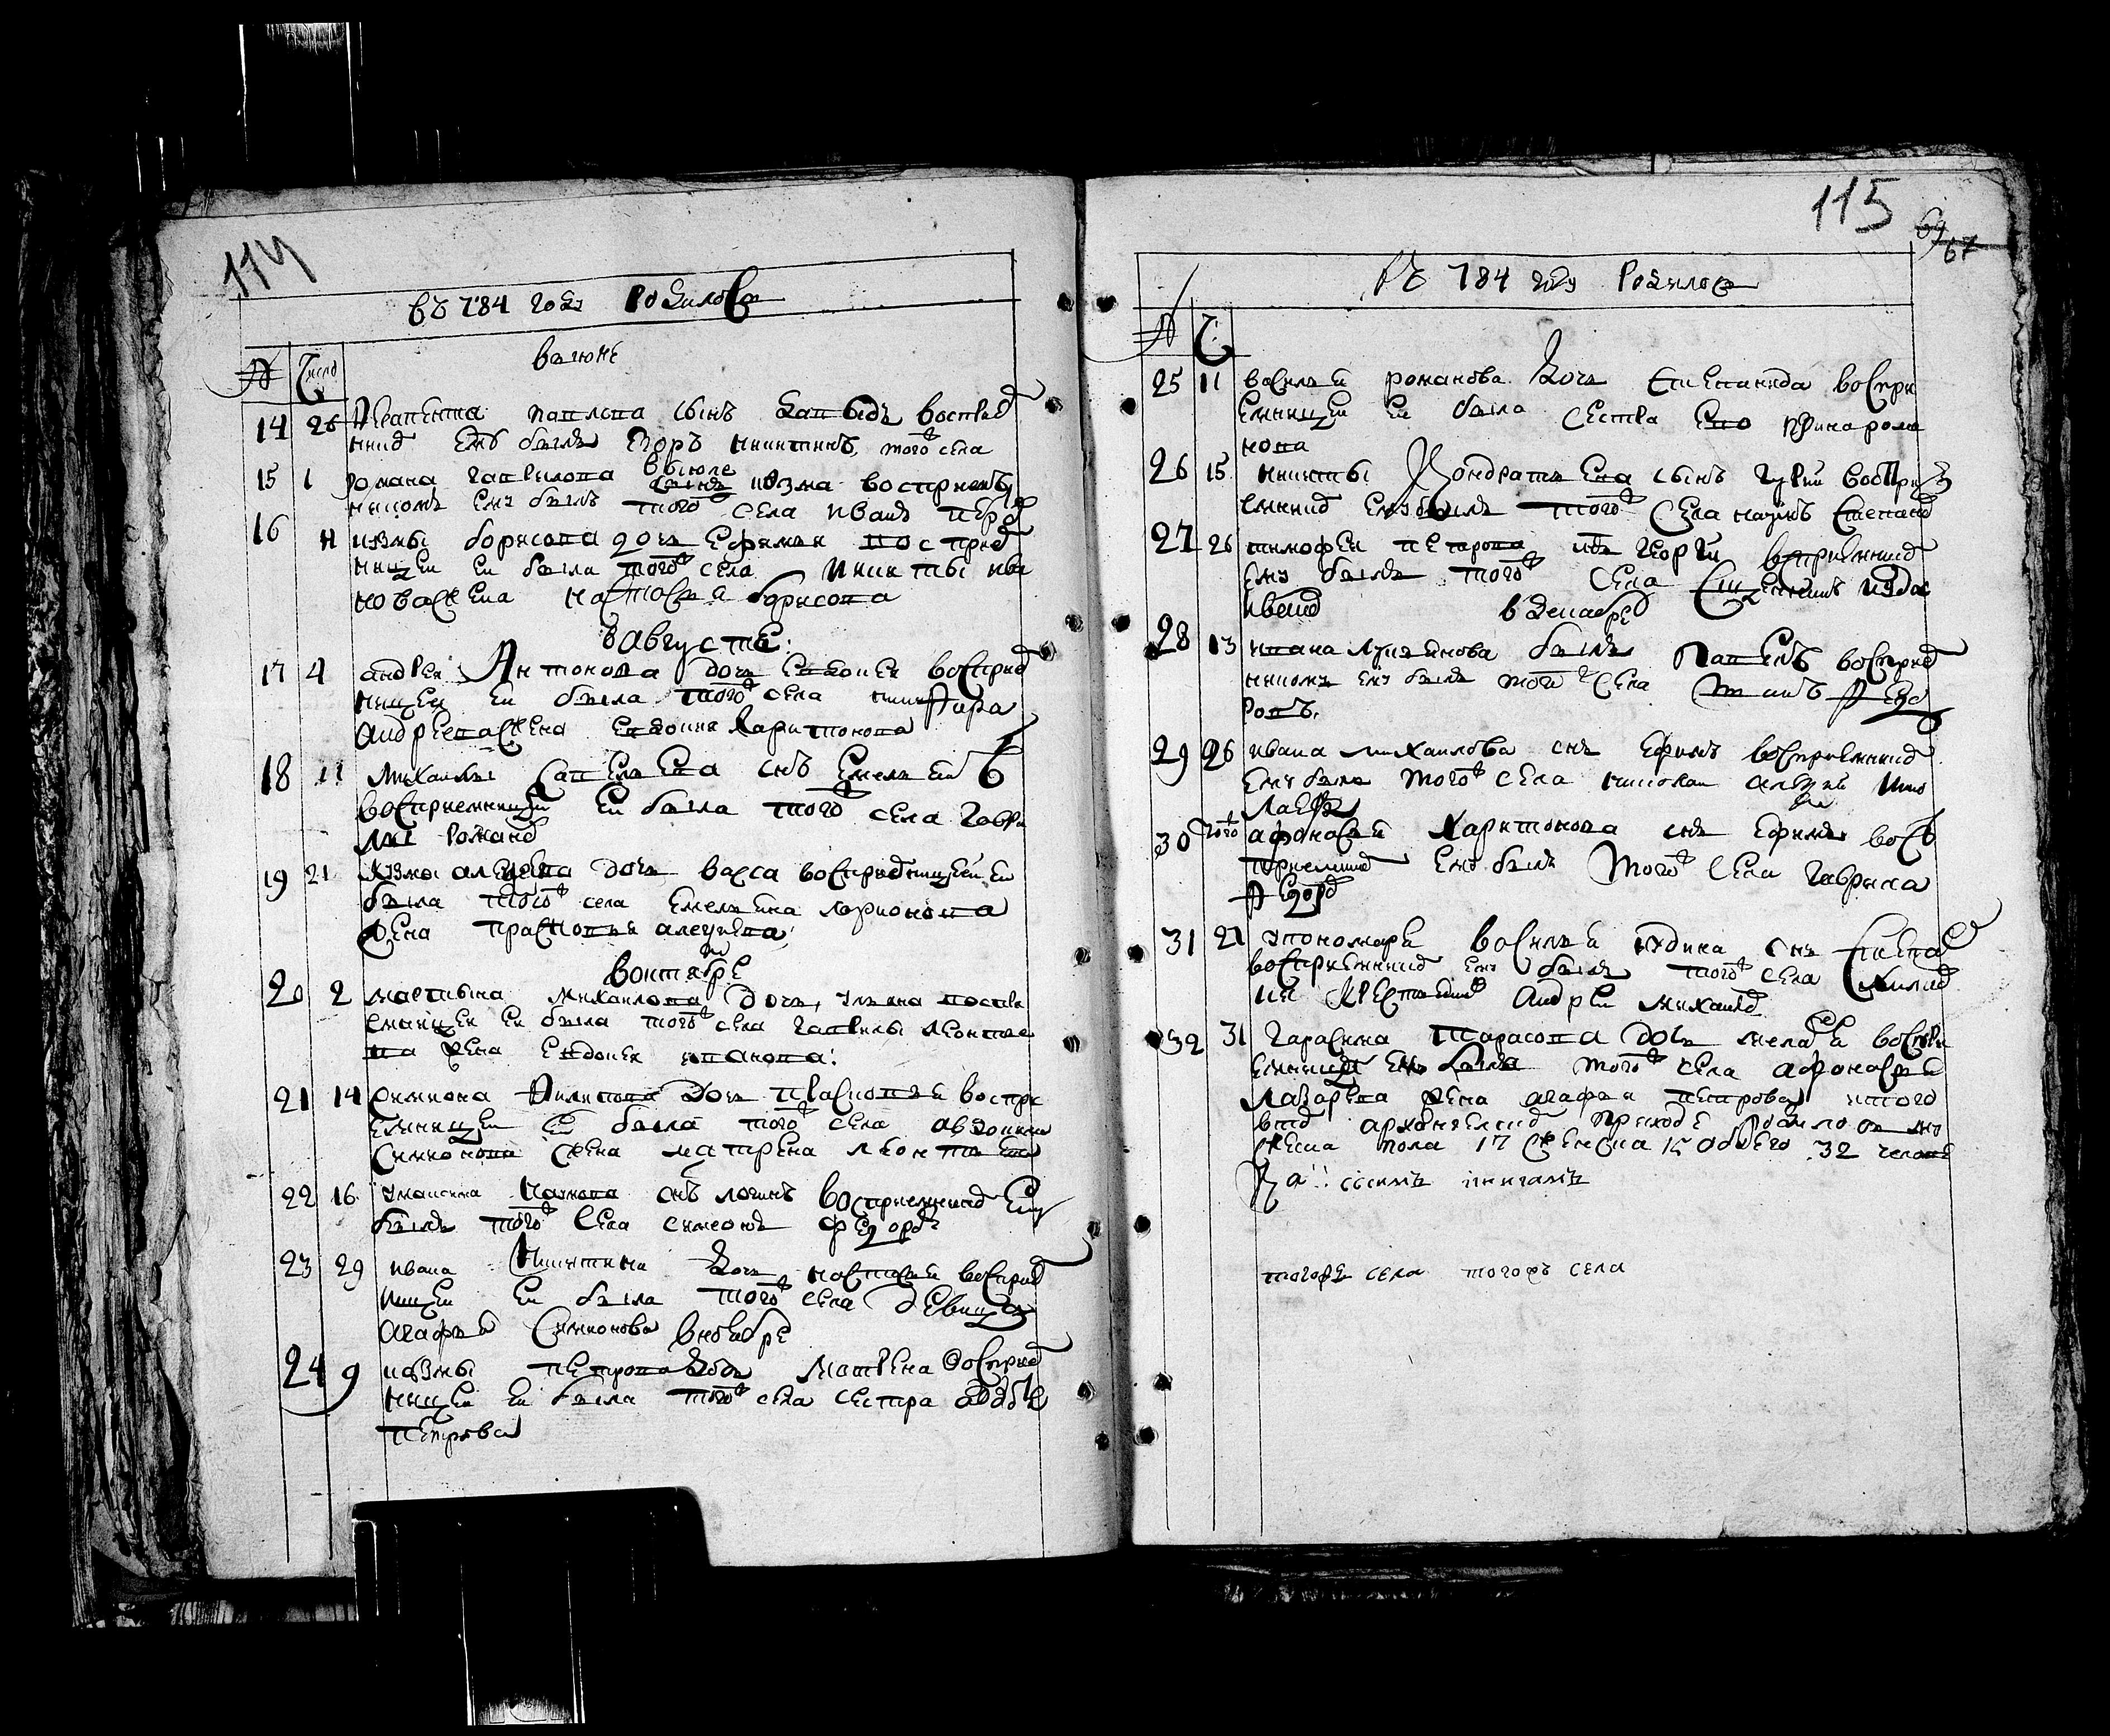 114
въ 784 году родилося
№ число
в июне
14 26 павлова сынъ давыдъ восприе
мник ему былъ Егоръ никитинъ того села
в июле
15 1 романа гаврилова сынъ козма восприемъ
никомъ ему былъ того села иванъ
16 11 козмы борисова дочь Ефимия восприе
ницеи еи была того села никиты ива
нова жена настасья борисова
в августе
17 4 андреи Антонова дочь Евдокия восприе
ницеи еи была того села
андреева жена евдокия харитонова
18 11 михаилы савельева снъ емельян
восприемницеи еи была того села гаври
ла роман
19 21 козмы алеѯеева дочь васса восприемницеи еи
была того села емельяна ларионова
жена прасковья алеѯеева
в октябре
20 2 мартына михаилова дочь улияна воспри
емницеи еи была того села гаврилы леонтье
ва жена евдокия иванова
21 14 симиона филипова дочь прасковья воспри
емницеи еи была того села
симионова жена матрена леонтьева
22 16 наумова снъ логинъ восприемник ему
былъ того села симеонъ федоров
23 29 ивана никитина дочь настасья восприем
ницеи еи была того села девица
агафья симионова в ноябре
24 9 козмы петрова дочь матрена восприем
ницеи еи была того села сестра авдотья
петрова
115
69
67
въ 784 году родилося
№ ч
25 11 василья романова дочь степанида воспри
емницеи еи была сестра ево ирина рома
нова
26 15 никиты Кондратьева сынъ гурии воспри
емник ему былъ того села наумъ степанов
27 26 тимофеи петрова снъ георги восприемник
ему былъ того села священникъ
в декабре
28 13 ивана лукьянова сынъ павелъ восприем
никомъ ему былъ того села титъ федо
ровъ
29 26 ивана михаилова снъ ефимъ восприемник
ему былъ того села николаи
30 того афонасья харитонова снъ ефимъ вос
приемник ему былъ того села гаврила
федоров
31 27 у пономаря василья юдина снъ степан
восприемник ему былъ того села
крестьянинъ андреи михаилов
32 31 гарасима тарасова дочь меланья воспри
емницеи ему была того села афонасья
лазарева жена агафья петрова итого
в том архангелском приходе родилося му
жеска пола 17 женска 15 обоего 32 человек
тогожъ села тогожъ села